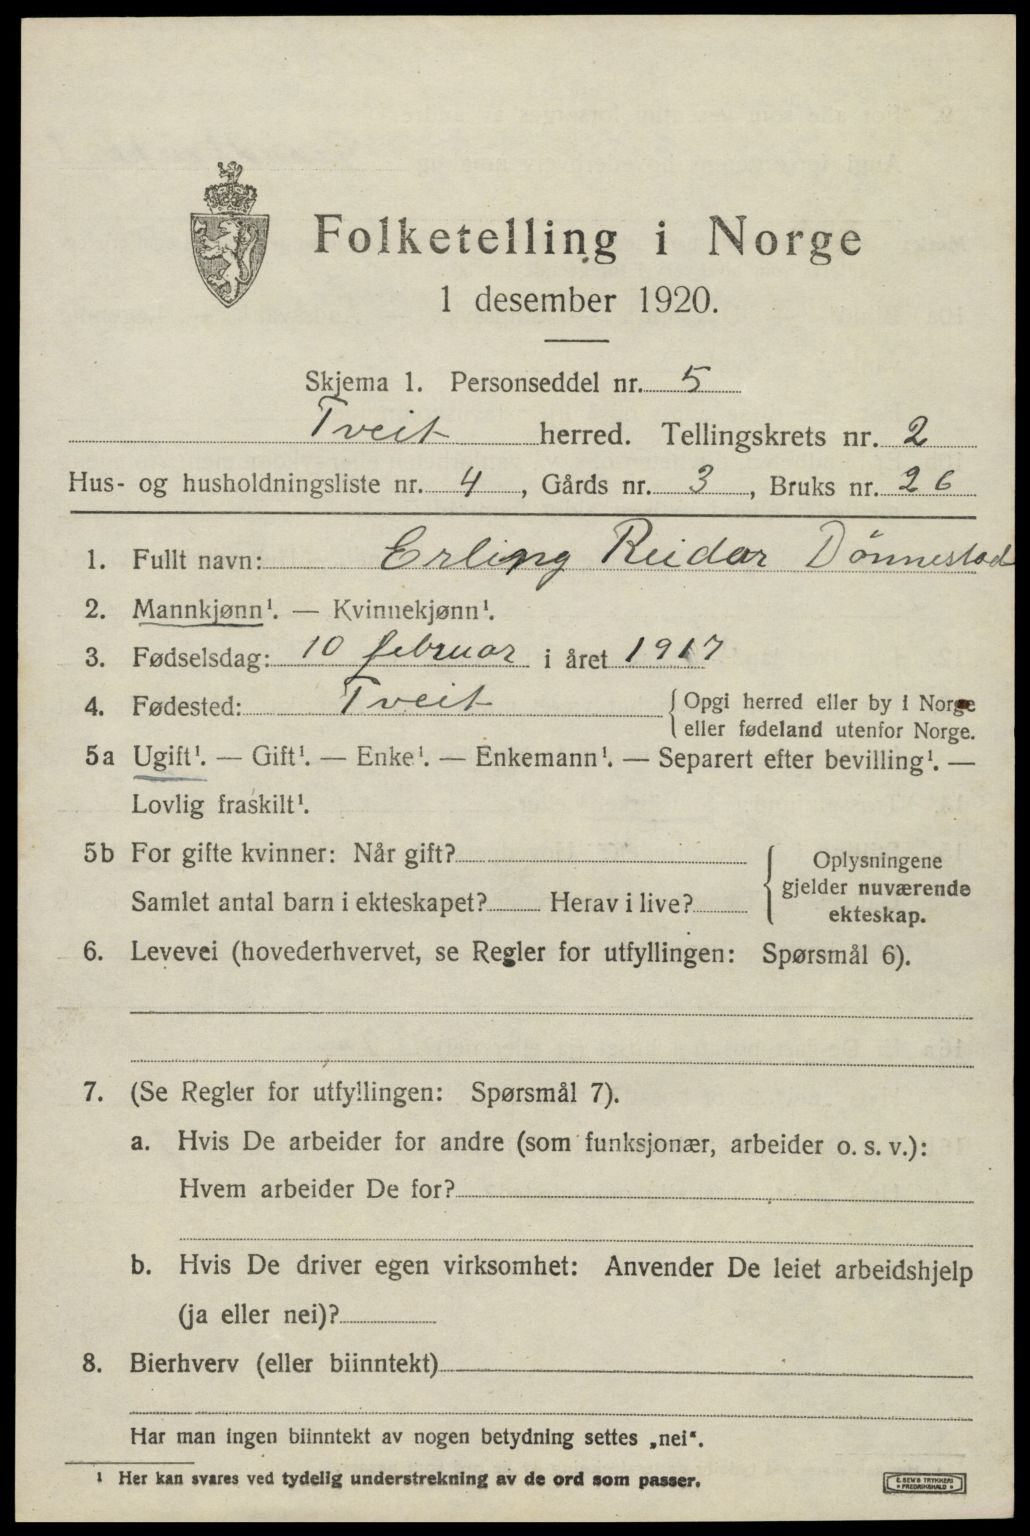 Folketelling i Norge
1 desember 1920.
Skjema 1. Personseddel nr. 5
Tveit herred. Tellingskrets nr. 2
Hus- og husholdningsliste nr. 4, Gårds nr. 3, Bruks nr. 26
1. Fullt navn: Erling Reidar Dönnestad
2. Mannkjønn¹. — Kvinnekjønn¹.
3. Fødselsdag: 10 februar i året 1917
4. Fødested: Tveit { Opgi herred eller by i Norge
eller fødeland utenfor Norge.
5a Ugift¹. — Gift¹. — Enke¹. — Enkemann¹. — Separert efter bevilling¹. —
Lovlig fraskilt¹.
5b For gifte kvinner: Når gift?
Samlet antal barn i ekteskapet? Herav i live?
{ Oplysningene
gjelder nuværende
ekteskap.
6. Levevei (hovederhvervet, se Regler for utfyllingen: Spørsmål 6).
7. (Se Regler for utfyllingen: Spørsmål 7).
a. Hvis De arbeider for andre (som funksjonær, arbeider o. s. v.):
Hvem arbeider De for?
b. Hvis De driver egen virksomhet: Anvender De leiet arbeidshjelp
(ja eller nei)?
8. Bierhverv (eller biinntekt)
Har man ingen biinntekt av nogen betydning settes „nei".
¹ Her kan svares ved tydelig understrekning av de ord som passer.
E. SEM'S TRYKKERI
FREDRIKSHALD